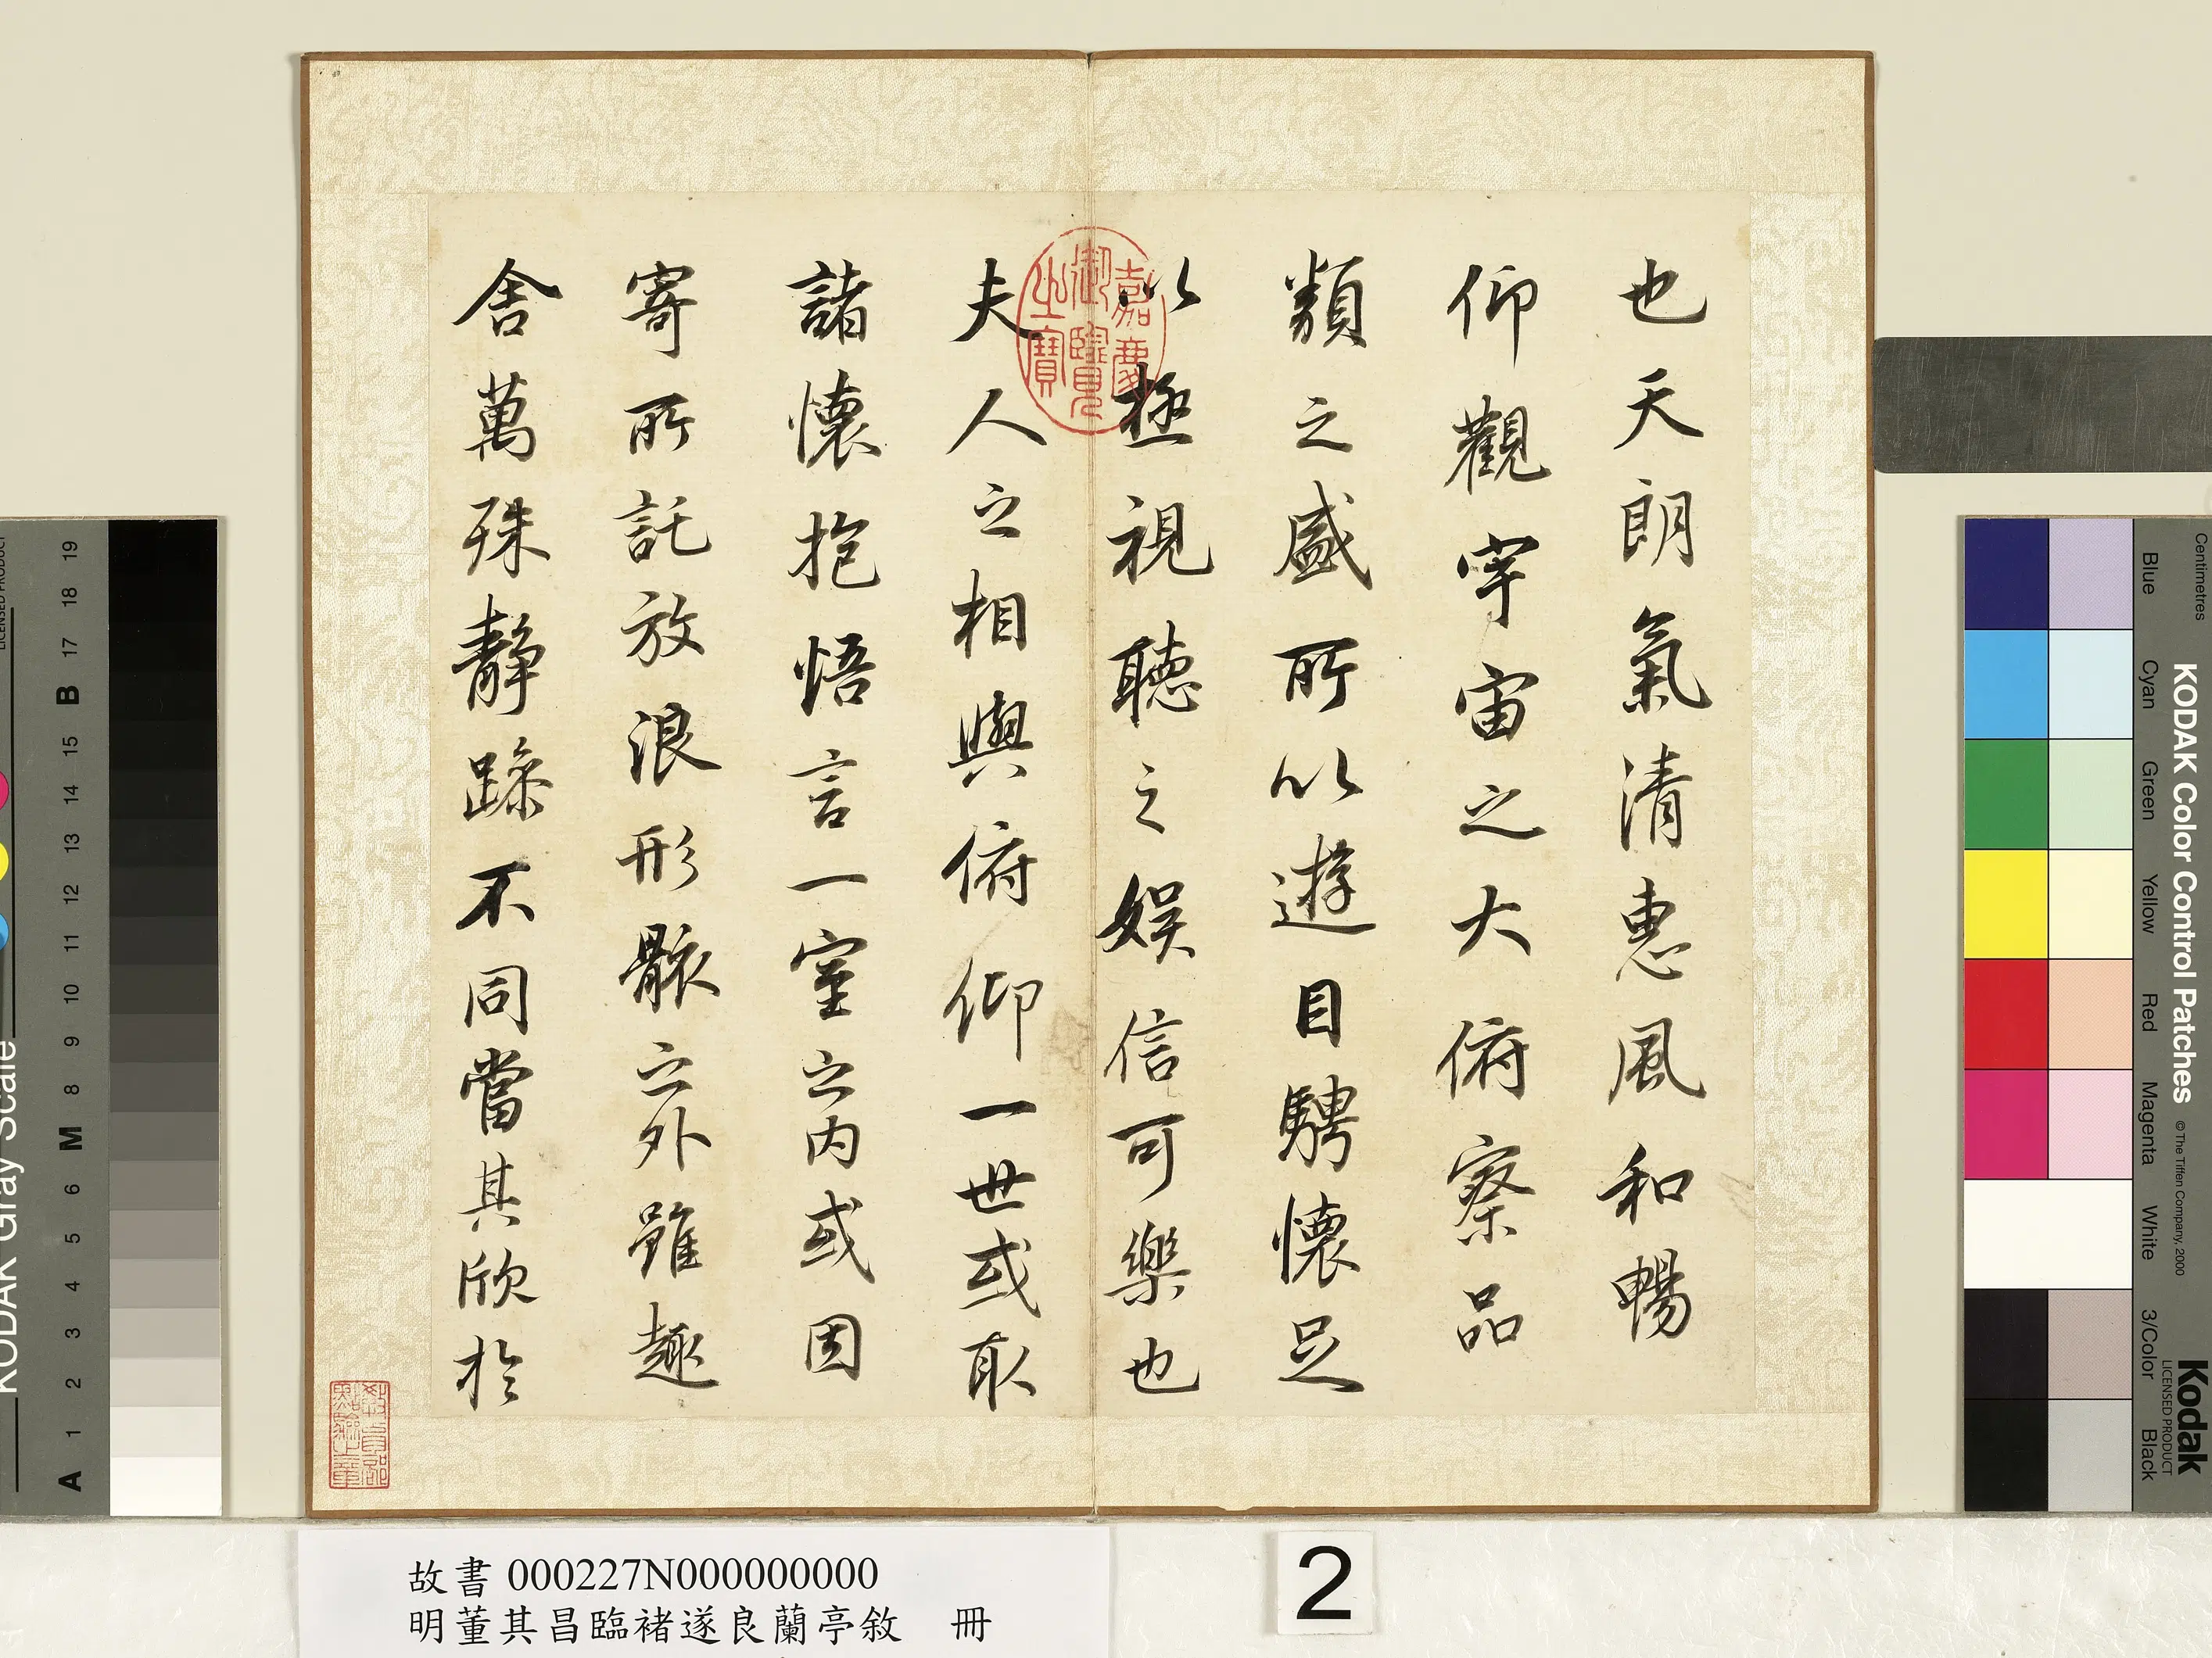 也天朗氣清惠風和暢
仰觀宇宙之大俯察品
類之盛所以遊目騁懷足
以極視聽之娛信可樂也
夫人之相與俯仰一世或取
諸懷抱悟言一室之內或因
寄所託放浪形骸之外雖趣
舍萬殊靜躁不同當其欣於
嘉慶
御覽
之寶
故書 000227N000000000
明董其昌臨褚遂良蘭亭敘 冊
2
KODAK Gray Scale
LICENSED PRODUCT
A 1 2 3 4 5 6 M 8 9 10 11 12 13 14 15 B 17 18 19
KODAK Color Control Patches
© The Tiffen Company, 2000
Kodak
LICENSED PRODUCT
Centimetres
Blue Cyan Green Yellow Red Magenta White 3/Color Black